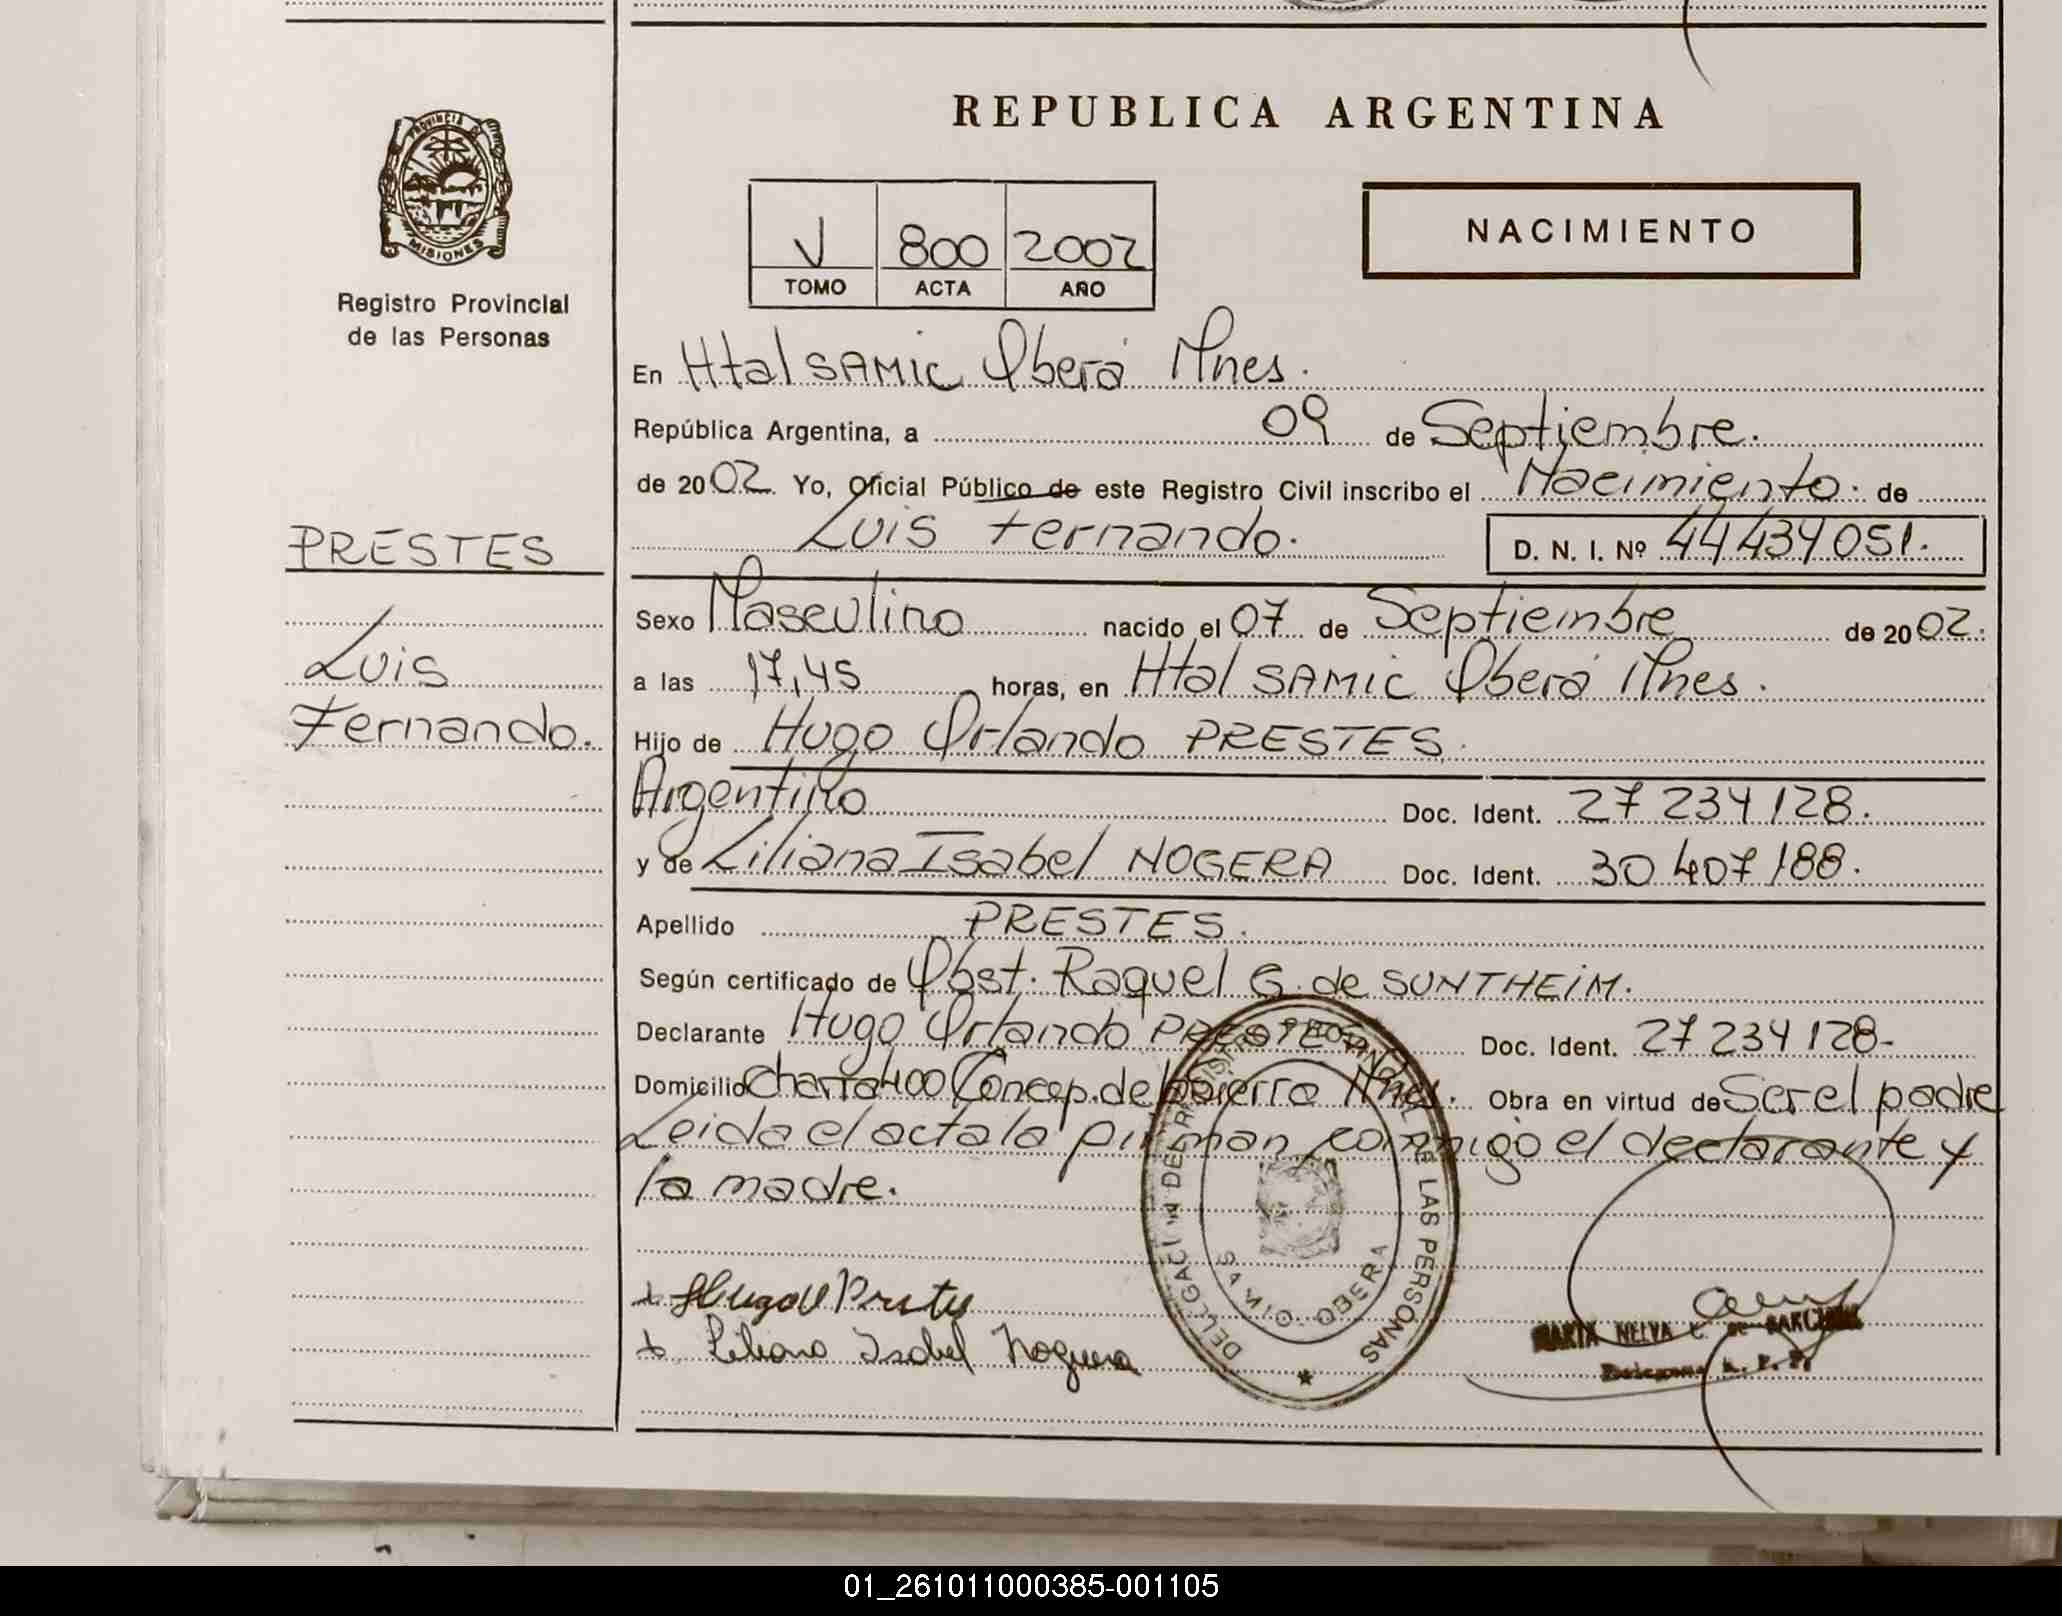 REPUBLICA ARGENTINA
PROVINCIA DE
MISIONES
Registro Provincial
de las Personas
V 800 2002
TOMO ACTA AÑO
NACIMIENTO
En Htal SAMIC Oberá Mnes.
República Argentina, a 09 de Septiembre.
de 2002. Yo, Oficial Público de este Registro Civil inscribo el Nacimiento. de
Luis Fernando. D. N. I. Nº 44434051.
PRESTES
Luis
Fernando.
Sexo Masculino nacido el 07 de Septiembre de 2002.
a las 17,45 horas, en Htal SAMIC Oberá Mnes.
Hijo de Hugo Orlando PRESTES.
Argentino Doc. Ident. 27 234 128.
y de Liliana Isabel NOGERA Doc. Ident. 30 407 188.
Apellido PRESTES.
Según certificado de Obst. Raquel G. de SUNTHEIM.
Declarante Hugo Orlando PRESTES Doc. Ident. 27 234 128-
Domicilio Chacra 400 Concep. de la Sierra Mnes. Obra en virtud de Ser el padre
Leida el acta la firman conmigo el declarante y
la madre.
DELEGACION DEL REGISTRO PROVINCIAL DE LAS PERSONAS
OBERA
+ Hugo O Prestes
+ Liliana Isabel Noguera
MARTA NELVA
01_261011000385-001105